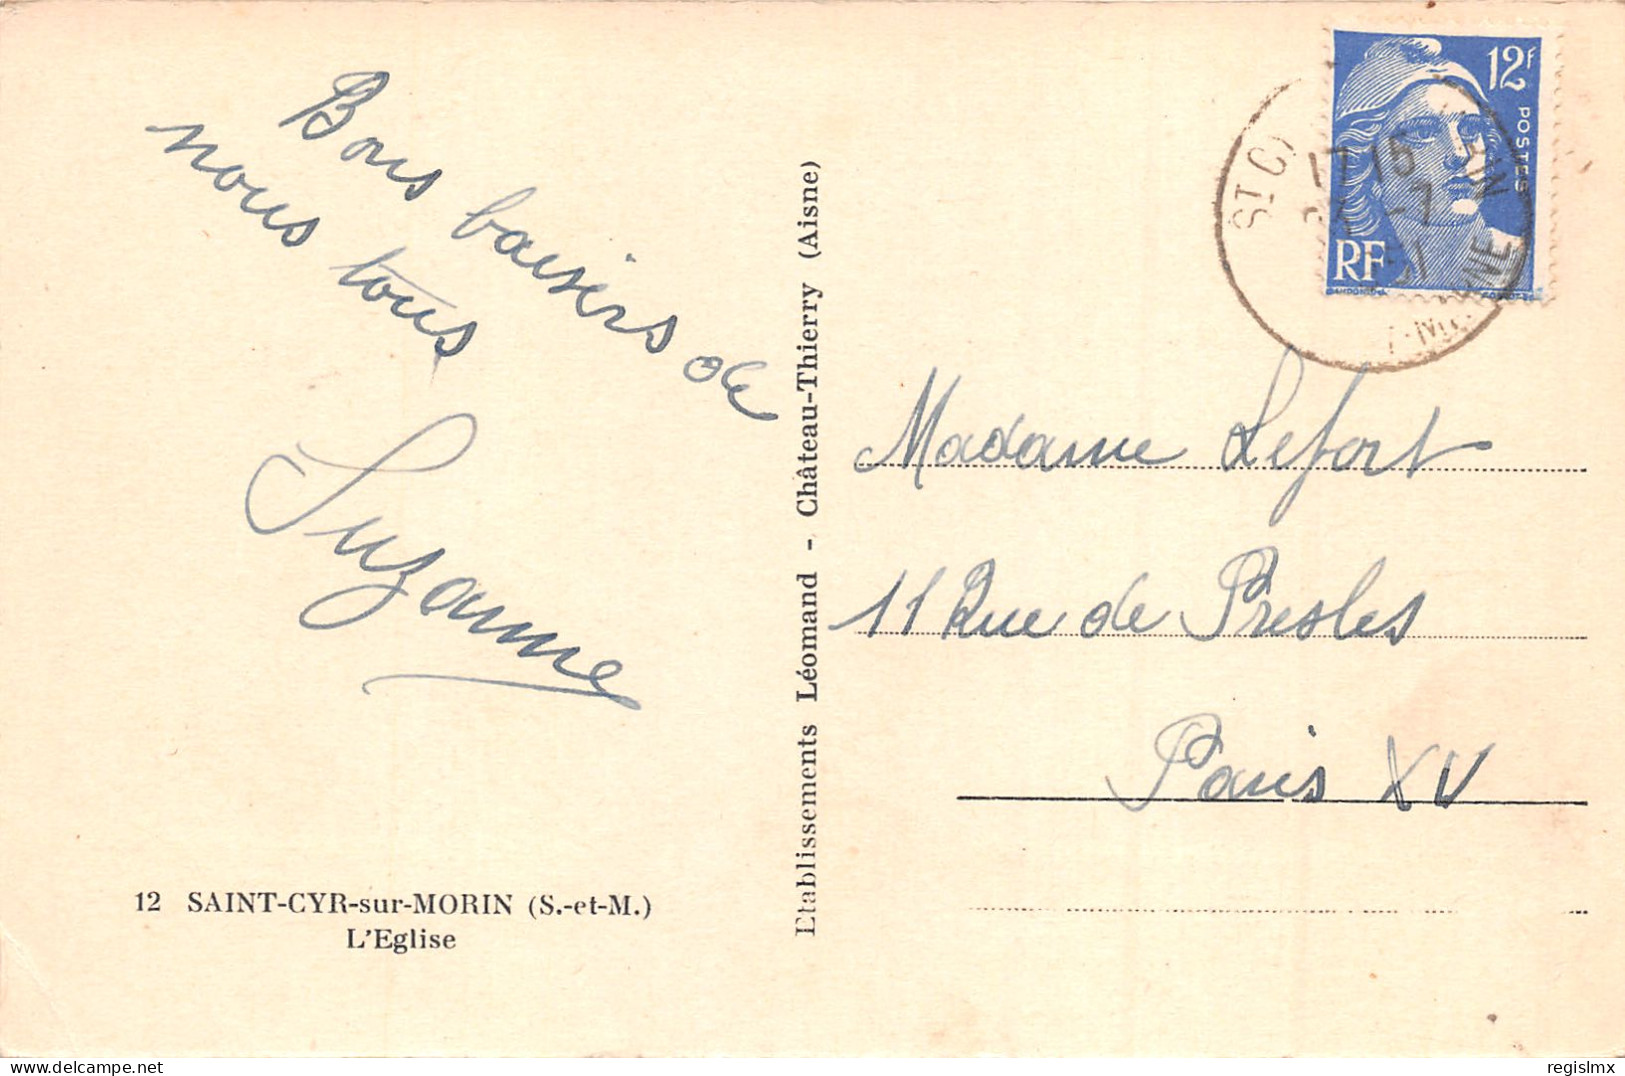 Bons baisers de
nous tous
Suzanne
12 SAINT-CYR-sur-MORIN (S.-et-M.)
L'Eglise
Etablissements Léomand - Château-Thierry (Aisne)
12F
POSTES
RF
17 15
-7
51
Madame Lefort
11 Rue de Presles
Paris XV
regislmx